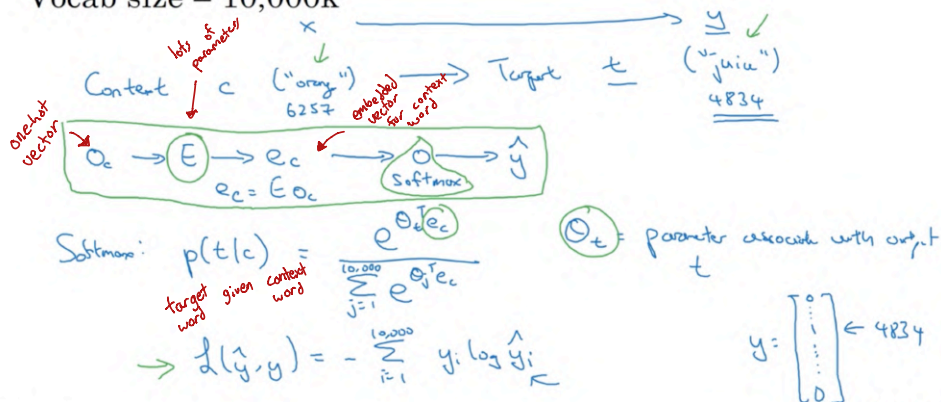 Vocab size = 10,000k
x → y
lots of parameters
Content c ("orang") → Target t ("juice")
6257 4834
embedded vector for context word
one-hot vector
O_c → E → e_c → O → ŷ
softmax
e_c = E O_c
Softmax: p(t|c) = e^{θ_t^T e_c} / Σ_{j=1}^{10,000} e^{θ_j^T e_c}
θ_t = parameter associate with output t
target word given context word
y = [0 ⋮ 1 ⋮ 0] ← 4834
→ ℒ(ŷ, y) = - Σ_{i=1}^{10,000} y_i log ŷ_i ←